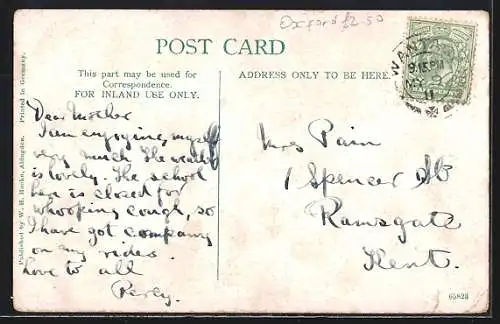 Oxford £2.50
POST CARD
This part may be used for
Correspondence.
FOR INLAND USE ONLY.
ADDRESS ONLY TO BE HERE.
WANTAGE
9.15PM
11
Dear Mother
I am enjoying myself
very much. The weather
is lovely. The school
here is closed for
whooping cough, so
I have got company
on my rides.
Love to all
Percy.
Mrs Pain
1 Spencer St
Ramsgate
Kent.
Published by W. H. Hooke, Abingdon. Printed in Germany.
65828